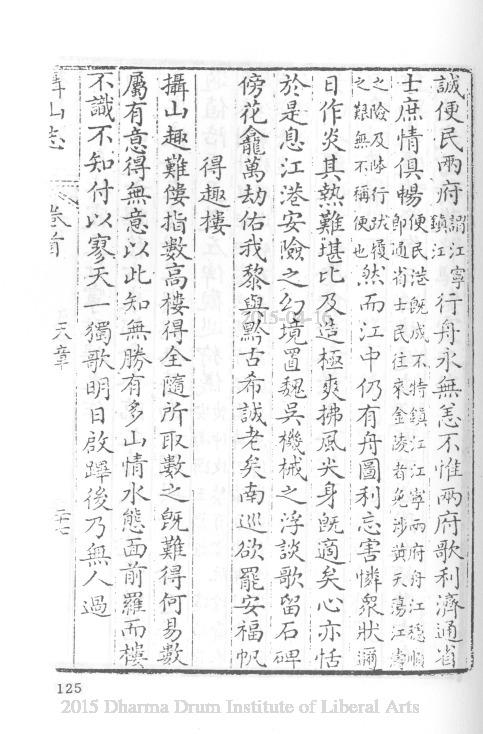 誠便民兩府謂江寧
鎮江行舟永無恙不惟兩府歌利濟通省
士庶情俱暢便民港旣成不特鎮江江寧兩府舟江穩順
即通省士民往來金陵者免涉黃天蕩江濤
之險及陟行跋履
之艱無不稱便也然而江中仍有舟圖利忘害憐衆狀邇
日作炎其熱難堪比及造極爽拂風尖身旣適矣心亦恬
於是息江港安險之幻境置魏吳機械之浮談歌留石碑
傍花龕萬劫佑我黎與黔古希誠老矣南巡欲罷安福帆
得趣樓
攝山趣難僂指數高樓得全隨所取數之旣難得何易數
屬有意得無意以此知無勝有多山情水態面前羅而樓
不識不知付以寥天一獨歌明日啟蹕後乃無人過
攝山志 卷首 天章
125
2015 Dharma Drum Institute of Liberal Arts